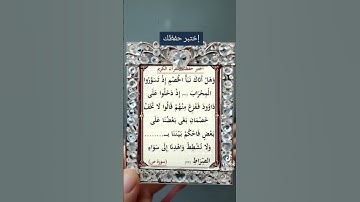 إختبر حفظك
وَهَلْ أَتَاكَ نَبَأُ الْخَصْمِ إِذْ تَسَوَّرُوا
الْمِحْرَابَ ... إِذْ دَخَلُوا عَلَى
دَاوُودَ فَفَزِعَ مِنْهُمْ قَالُوا لَا تَخَفْ
خَصْمَانِ بَغَى بَعْضُنَا عَلَى
بَعْضٍ فَاحْكُمْ بَيْنَنَا بِـ........
وَلَا تُشْطِطْ وَاهْدِنَا إِلَى سَوَاءِ
الصِّرَاطِ (سورة ص)